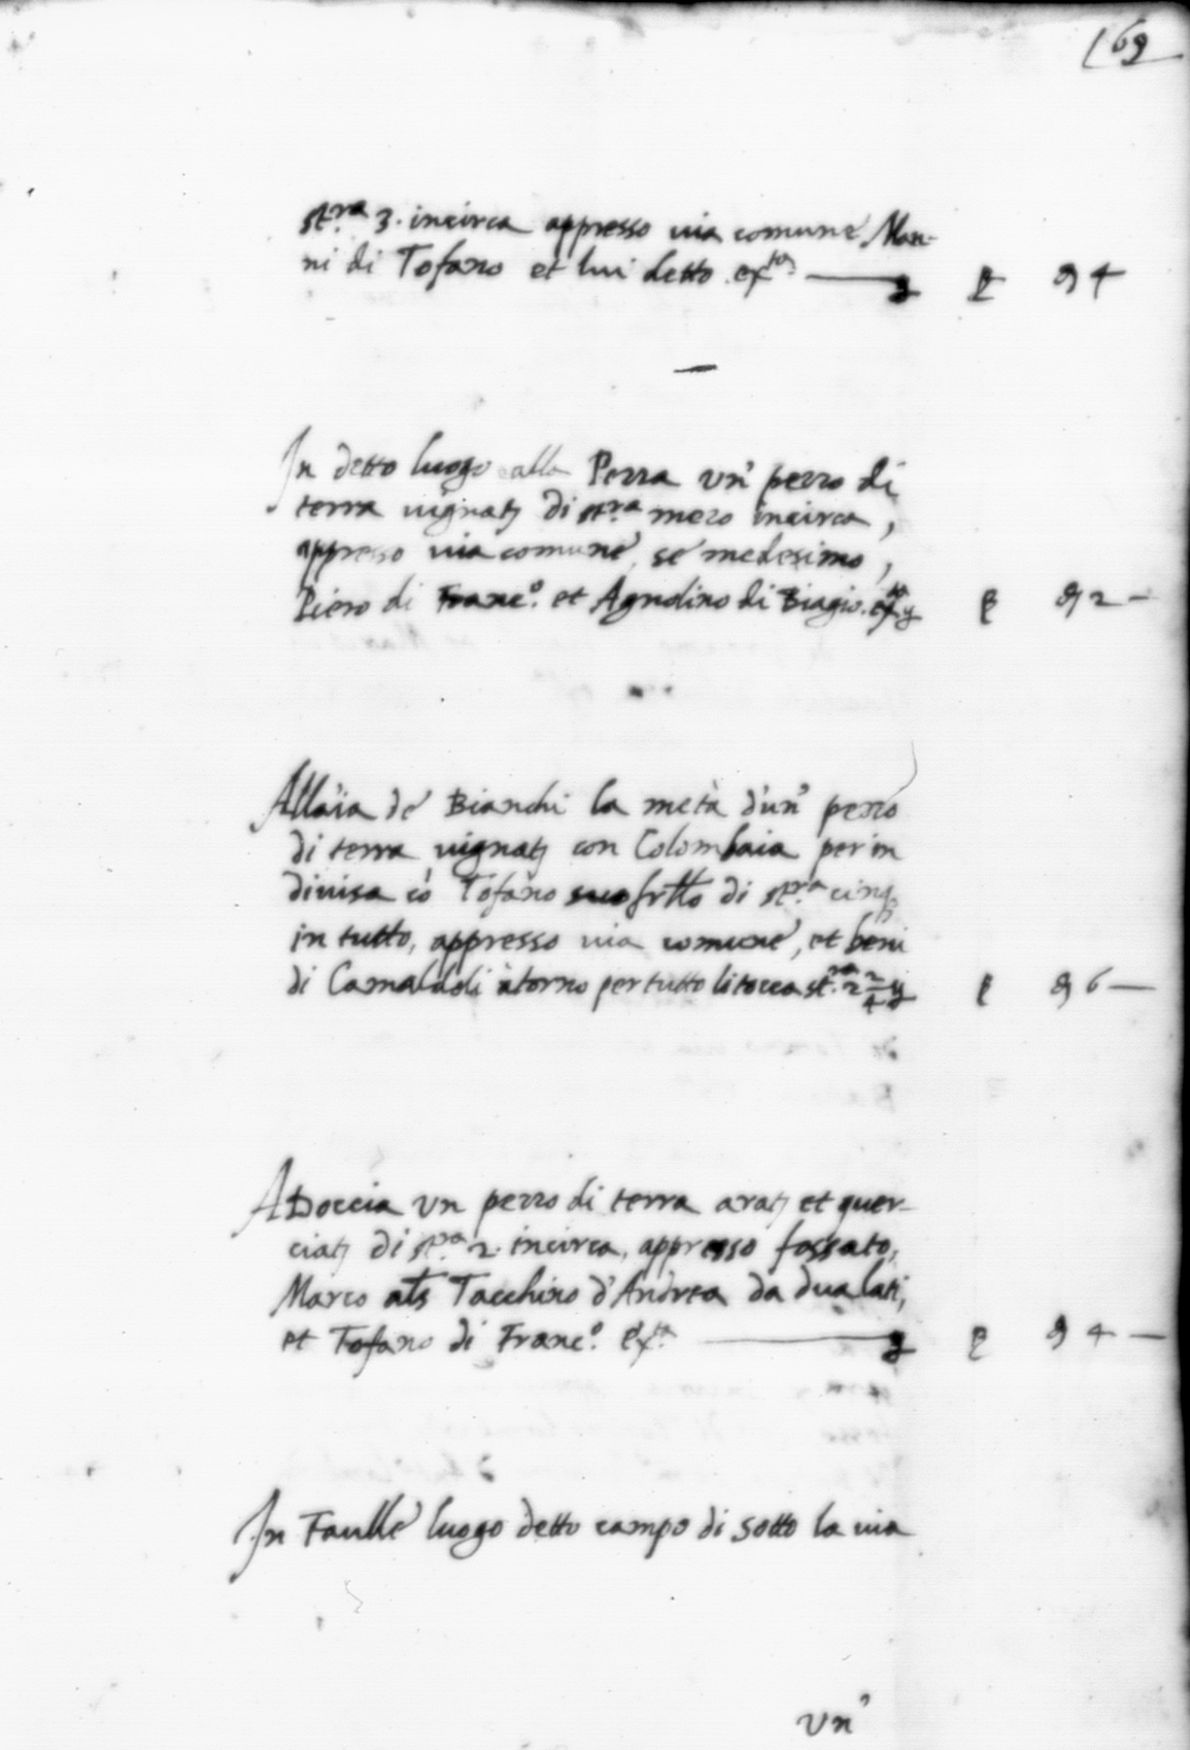 169
st.ra 3. incirca appresso via comune, Man-
ni di Tofano et lui detto ex.to
In detto luogo alla Pezza un' pezzo di
terra vignat. di st.ra mezo incirca,
appresso via comune, se medesimo,
Piero di Franc.o et Agnolino di Biagio. ex.to
All'aia de' Bianchi la metà d'un' pezzo
di terra vignat. con Colombaia per in
divisa cō Tofano suo frtllo di st.ra cinq
in tutto, appresso via comune, et beni
di Camaldoli àtorno per tutto li tocca st.ra 2 2/4
A Doccia un pezzo di terra arat. et quer-
ciat. di st.ra 2. incirca, appresso fossato,
Marco als Tacchino d'Andrea da dua lati,
et Tofano di Franc.o ex.to
In Faulle luogo detto campo di sotto la via
un'